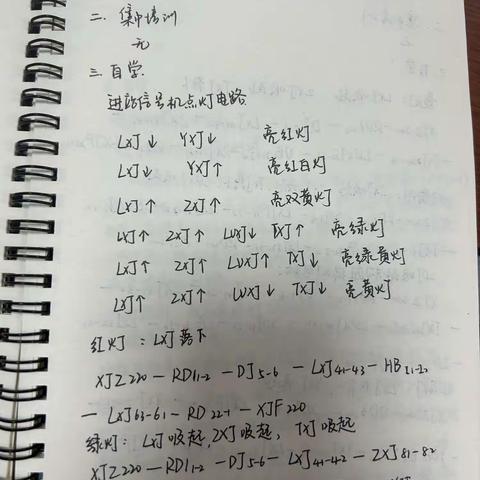 二. 集中培训
无
三. 自学
进站信号机点灯电路
LXJ↓ YXJ↓ 亮红灯
LXJ↓ YXJ↑ 亮红白灯
LXJ↑ ZXJ↓ 亮双黄灯
LXJ↑ ZXJ↑ LUXJ↓ TXJ↑ 亮绿灯
LXJ↑ ZXJ↑ LUXJ↑ TXJ↓ 亮绿黄灯
LXJ↑ ZXJ↑ LUXJ↓ TXJ↓ 亮黄灯
红灯：LXJ落下
XJZ220 — RD11-2 — DJ5-6 — LXJ41-43 — HB
— LXJ63-61 — RD22-1 — XJF220
绿灯：LXJ吸起, ZXJ吸起, TXJ吸起
XJZ220 — RD11-2 — DJ5-6 — LXJ41-42 — ZXJ81-82